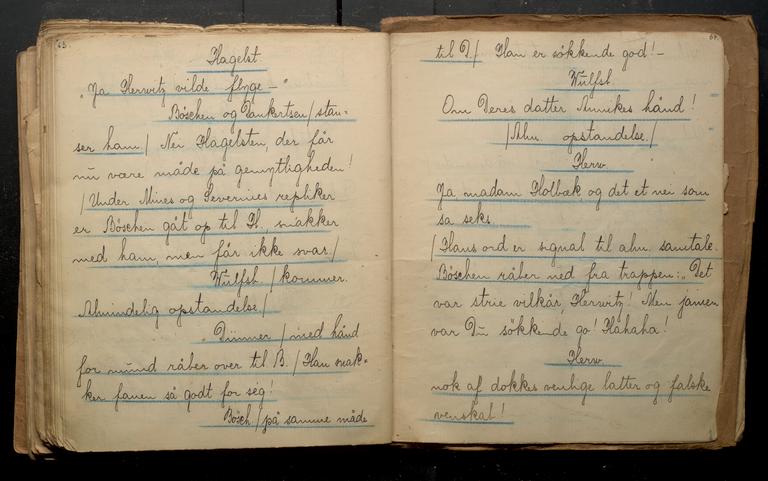 63.
Hagelst
"Ja Herwitz vilde flyge —"
Böschen og Dankertsen / stan-
ser ham / Nei Hagelsten, der får
nu være måde på gemytligheden!
/ Under Mines og Severines repliker
er Böschen gåt op til H., snakker
med ham, men får ikke svar /
Wulfst / kommer.
Almindelig opstandelse /
Dünner / med hånd
for mund råber over til B. / Han snak-
ker fanen så godt for seg!
Bösch / på samme måde
64.
til D / Han er sökkende god! —
Wulfst
Om Deres datter Annikes hånd!
/ Alm. opstandelse. /
Herw.
Ja, madam Holbæk og det et nei som
sa seks.
/ Hans ord er signal til alm. samtale.
Böschen råber ned fra trappen: "Det
var strie vilkår, Herwitz! Men jamen
var Du sökkende go! Hahaha!
Herw.
nok af dokkes venlige latter og falske
venskal!